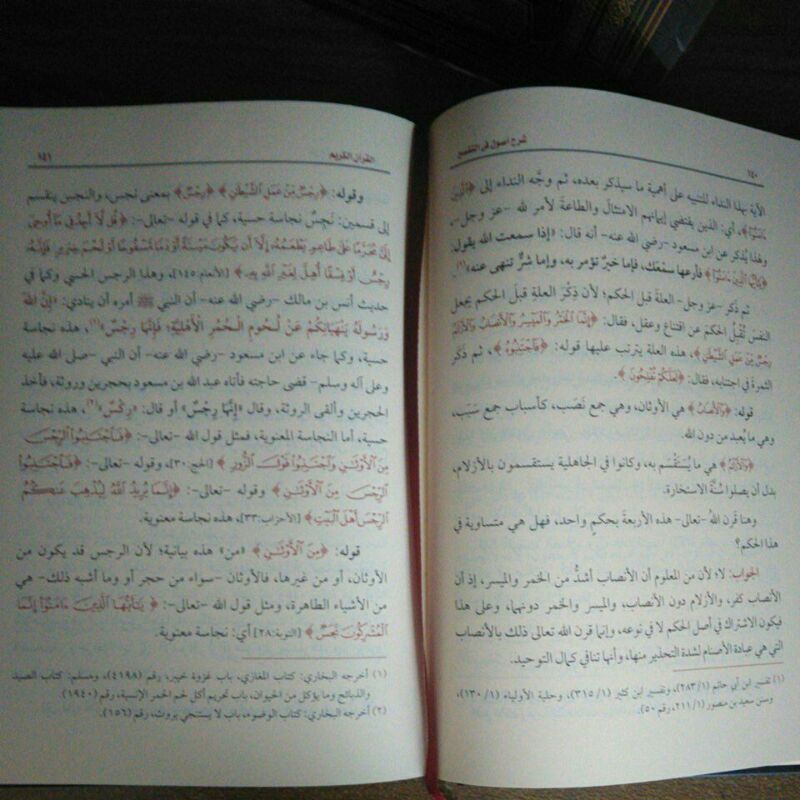 ١٤٠
شرح أصول في التفسير
الآية بهذا النداء للتنبيه على أهمية ما سيذكر بعده، ثم وجَّه النداء إلى ﴿الَّذِينَ
ءَامَنُوا﴾، أي: الذين يقتضي إيمانهم الامتثالَ والطاعةَ لأمر لله -عز وجل-،
ولهذا يُذكر عن ابن مسعود -رضي الله عنه- أنه قال: «إذا سمعت الله يقول:
﴿يَا أَيُّهَا الَّذِينَ ءَامَنُوا﴾ فأرعها سمْعَك، فإما خيرٌ تؤمر به، وإما شرٌّ تنهى عنه»(١).
ثم ذكر -عز وجل- العلة قبل الحكم؛ لأن ذِكْرَ العلةِ قبلَ الحكمِ يجعل
النفس تقْبلُ الحكمَ عن اقتناع وعقل، فقال: ﴿إِنَّمَا الْخَمْرُ وَالْمَيْسِرُ وَالْأَنصَابُ وَالْأَزْلَامُ
رِجْسٌ مِّنْ عَمَلِ الشَّيْطَانِ﴾، هذه العلة يترتب عليها قوله: ﴿فَاجْتَنِبُوهُ﴾، ثم ذكَر
الثمرةَ في اجتنابه، فقال: ﴿لَعَلَّكُمْ تُفْلِحُونَ﴾.
قوله: ﴿وَالْأَنصَابُ﴾ هي الأوثان، وهي جمع نَصَب، كأسباب جمع سَبَب،
وهي ما يُعبد من دون الله.
﴿وَالْأَزْلَامُ﴾ هي ما يُستَقْسَم به، وكانوا في الجاهلية يستقسمون بالأزلام،
بدل أن يصلوا سُنَّةَ الاستخارة.
وهنا قرن اللهُ -تعالى- هذه الأربعةَ بحكمٍ واحد، فهل هي متساوية في
هذا الحكم؟
الجواب: لا؛ لأن من المعلوم أن الأنصاب أشدُّ من الخمر والميسر، إذ أن
الأنصاب كفر، والأزلام دون الأنصاب، والميسر والخمر دونهما، وعلى هذا
فيكون الاشتراك في أصل الحكم لا في نوعه، وإنما قرن الله تعالى ذلك بالأنصاب
التي هي عبادة الأصنام لشدة التحذير منها، وأنها تنافي كمال التوحيد.
(١) تفسير ابن أبي حاتم (١/ ٢٨٣)، وتفسير ابن كثير (١/ ٣١٥)، وحلية الأولياء (١/ ١٣٠)،
وسنن سعيد بن منصور (١/ ٢١١، رقم ٥٠).
القرآن الكريم
١٤١
وقوله: ﴿رِجْسٌ مِّنْ عَمَلِ الشَّيْطَانِ﴾ ﴿رِجْسٌ﴾ بمعنى نجس، والنجس ينقسم
إلى قسمين: نَجِسٌ نجاسة حسية، كما في قوله -تعالى-: ﴿قُل لَّا أَجِدُ فِي مَا أُوحِيَ
إِلَيَّ مُحَرَّمًا عَلَىٰ طَاعِمٍ يَطْعَمُهُ إِلَّا أَن يَكُونَ مَيْتَةً أَوْ دَمًا مَّسْفُوحًا أَوْ لَحْمَ خِنزِيرٍ فَإِنَّهُ
رِجْسٌ أَوْ فِسْقًا أُهِلَّ لِغَيْرِ اللَّهِ بِهِ﴾ [الأنعام:١٤٥]، وهذا الرجس الحسي وكما في
حديث أنس بن مالك -رضي الله عنه- أن النبي ﷺ أمره أن ينادي: «إِنَّ اللهَ
وَرَسُولَهُ يَنْهَيَانِكُمْ عَنْ لُحُومِ الْحُمُرِ الْأَهْلِيَّةِ؛ فَإِنَّهَا رِجْسٌ»(١)، هذه نجاسة
حسية، وكما جاء عن ابن مسعود -رضي الله عنه- أن النبي -صلى الله عليه
وعلى آله وسلم- قضى حاجته فأتاه عبد الله بن مسعود بحجرين وروثة، فأخذ
الحجرين وألقى الروثة، وقال «إِنَّهَا رِجْسٌ» أو قال: «رِكْسٌ»(٢)، هذه نجاسة
حسية، أما النجاسة المعنوية، فمثل قول الله -تعالى-: ﴿فَاجْتَنِبُوا الرِّجْسَ
مِنَ الْأَوْثَانِ وَاجْتَنِبُوا قَوْلَ الزُّورِ﴾ [الحج:٣٠]، وقوله -تعالى-: ﴿فَاجْتَنِبُوا
الرِّجْسَ مِنَ الْأَوْثَانِ﴾ وقوله -تعالى-: ﴿إِنَّمَا يُرِيدُ اللَّهُ لِيُذْهِبَ عَنكُمُ
الرِّجْسَ أَهْلَ الْبَيْتِ﴾ [الأحزاب:٣٣]، هذه نجاسة معنوية.
قوله: ﴿مِنَ الْأَوْثَانِ﴾ «من» هذه بيانية؛ لأن الرجس قد يكون من
الأوثان، أو من غيرها، فالأوثان -سواء من حجر أو ما أشبه ذلك- هي
من الأشياء الطاهرة، ومثل قول الله -تعالى-: ﴿يَا أَيُّهَا الَّذِينَ ءَامَنُوا إِنَّمَا
الْمُشْرِكُونَ نَجَسٌ﴾ [التوبة:٢٨] أي: نجاسة معنوية.
(١) أخرجه البخاري: كتاب المغازي، باب غزوة خيبر، رقم (٤١٩٨)، ومسلم: كتاب الصيد
والذبائح وما يؤكل من الحيوان، باب تحريم أكل لحم الحمر الإنسية، رقم (١٩٤٠)
(٢) أخرجه البخاري: كتاب الوضوء، باب لا يستنجى بروث، رقم (١٥٦).